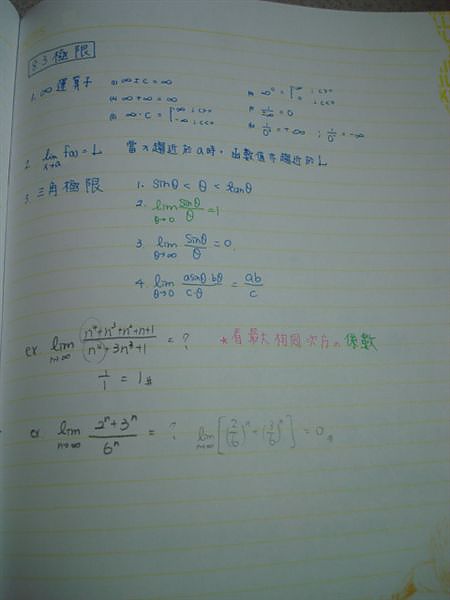 §3 極限
1. ∞ 運算子 (1) ∞ ± c = ∞
(2) ∞ + ∞ = ∞
(3) ∞ · c = { ∞ ; c>0
-∞ ; c<0
∞^c = { ∞ ; c>0
0 ; c<0
1/±∞ = 0
1/0⁺ = +∞ ; 1/0⁻ = -∞
2. lim x→a f(x) = L 當 x 趨近於 a 時, 函數值亦趨近於 L
3. 三角極限 1. sinθ < θ < tanθ
2. lim θ→0 sinθ/θ = 1
3. lim θ→∞ sinθ/θ = 0
4. lim θ→0 asinθ·bθ/c·θ = ab/c
ex lim n→∞ (n⁴+n³+n²+n+1)/(n⁴+3n³+1) = ? * 看最大相同次方的係數
1/1 = 1 #
ex lim n→∞ (2ⁿ+3ⁿ)/6ⁿ = ? lim n→∞ [(2/6)ⁿ + (3/6)ⁿ] = 0 #